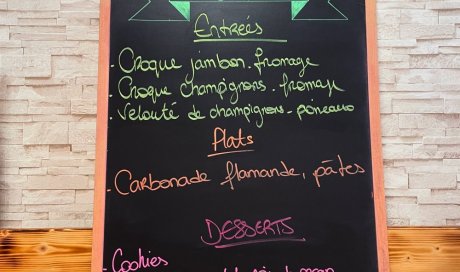 Entrées
- Croque jambon. fromage
- Croque champignons. fromage
- Velouté de champignons - poireaux
Plats
- Carbonade flamande, pâtes
DESSERTS
- Cookies